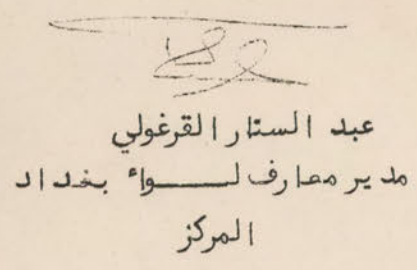 عبد الستار القرغولي
مدير معارف لـــواء بغداد
المركز